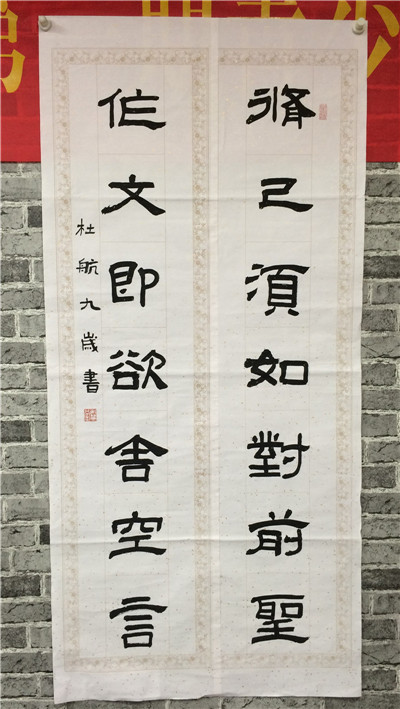 脩己須如對前聖
作文即欲舍空言
杜航九歲書